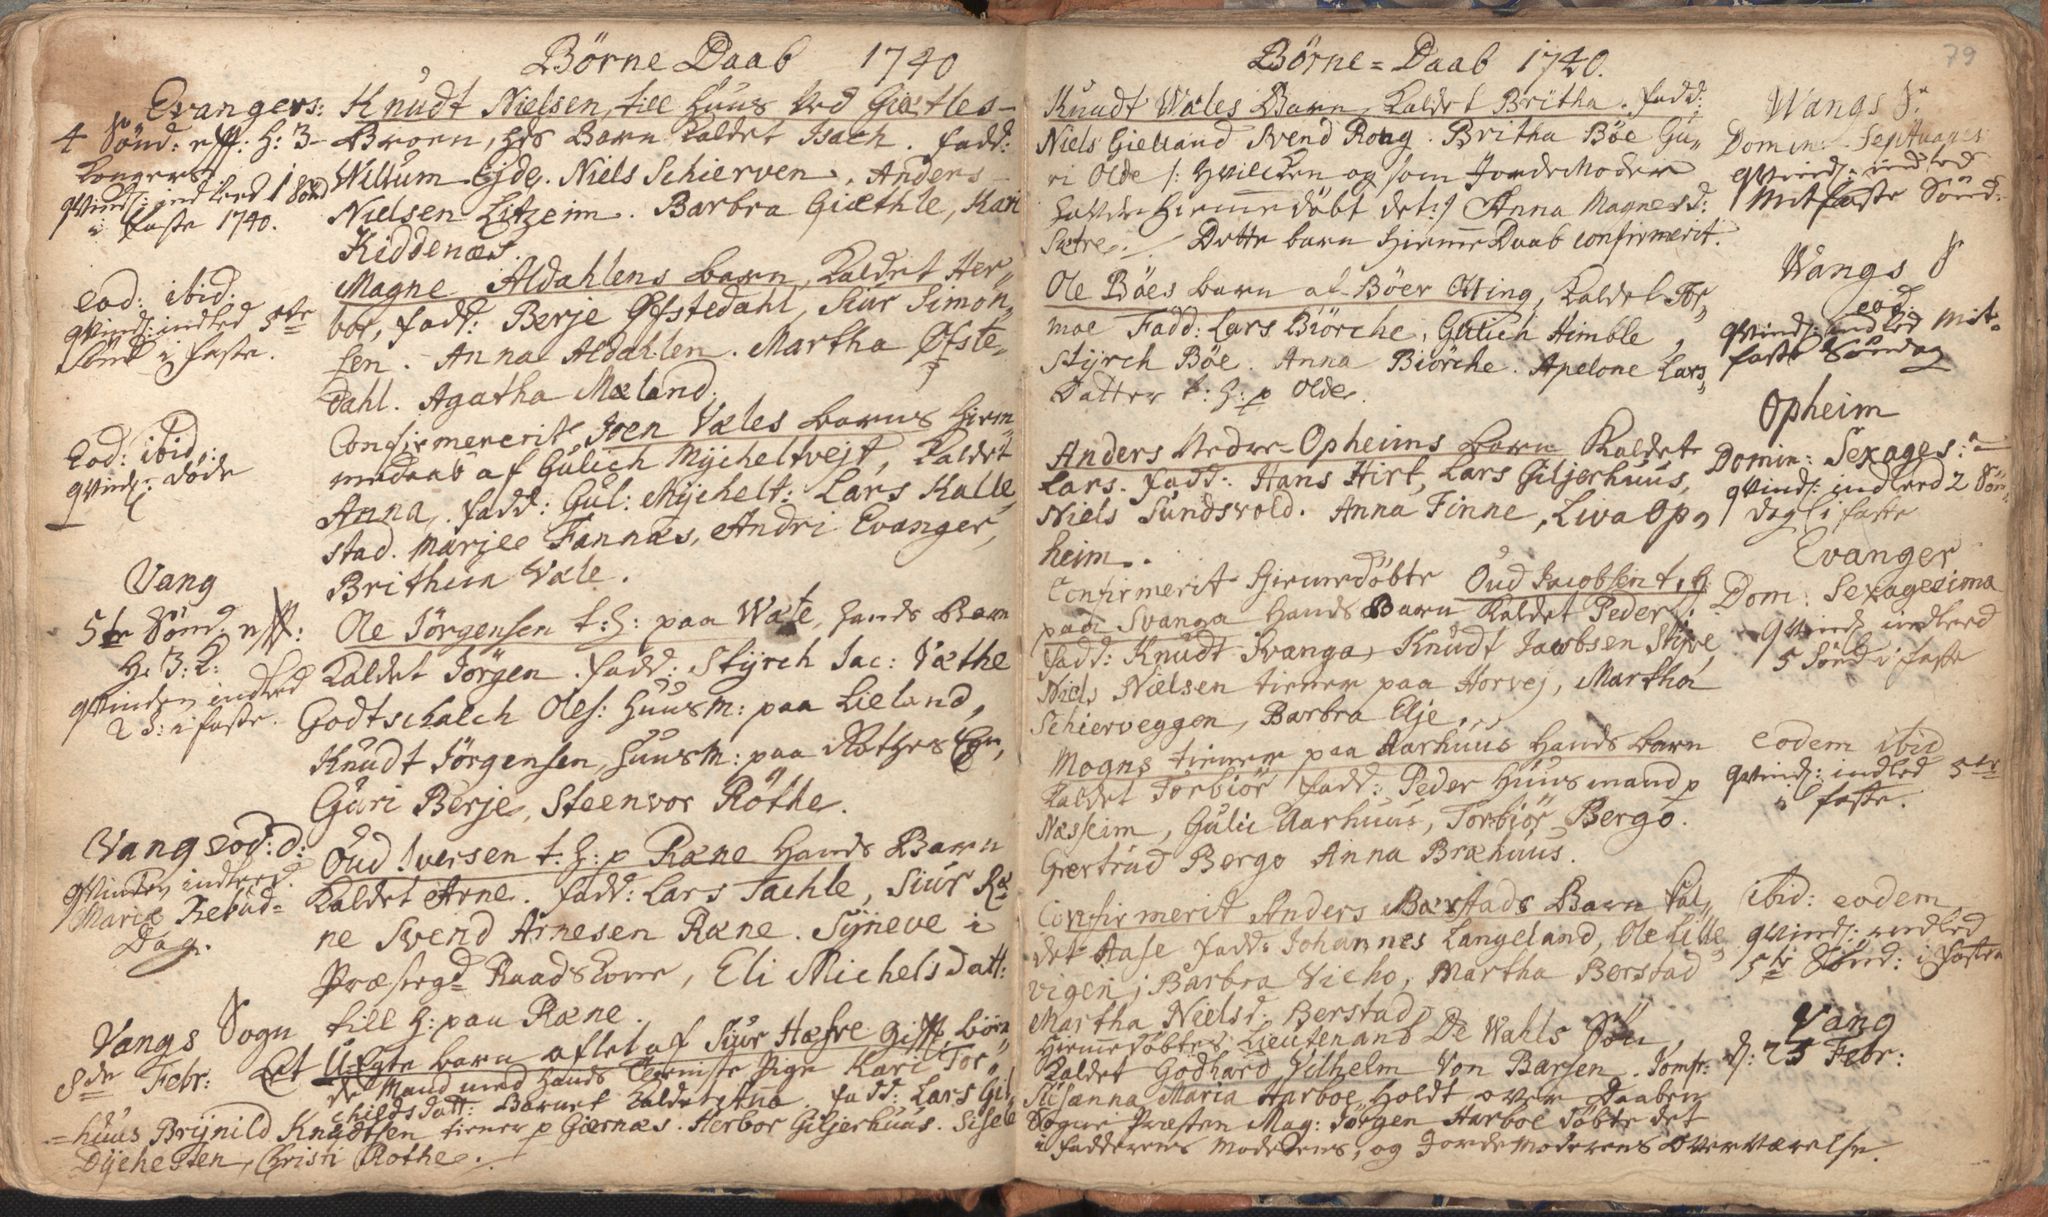 Börne Daab 1740
Evangers:
4 Sönd: eff: H: 3
Kongers:
qvind: indleed 1 Sönd
i Faste 1740.
Knudt Nielsen, till Huus ved Giætles-
Broen, hs Barn kaldet Isach. Fadd:
Willum Ejde. Niels Schierven. Anders
Nielsen Litzeim. Barbra Giæthle, Kari
Kiddenæs.
eod: ibid:
qvind: indled 5te
Sönd i faste.
Magne Aldahlens barn, kaldet Her-
bor, fadd: Berje Øfstedahl, Siur Simon-
sen. Anna Aldahlen. Martha Øfste-
dahl. Agatha Mæland.
Eod: ibid:
qvind: döde
Confirmererit Joen Væles barns Hiem-
medaab af Gulich Mycheltvejt, kaldet
Anna. fadd: Gul: Mychelt: Lars Kalle-
stad. Marjee Fannæs, Andri Evanger,
Britheva Væle.
Vang
5te Sönd eff:
H. 3. K:
qvinden indled
2 S: i faste.
Ole Jörgensen t: H: paa Wæte, hands Barn
kaldet Jörgen. fadd: Styrch Jac: Væthe
Godtschalch Oles: Huusm: paa Lieland,
Knudt Jörgensen, huusm: paa Rothes Egn,
Guri Berje, Steenvor Röthe.
Vang eod: d:
qvinden indleed
Mariæ Bebud=
Dag.
Oud Iversen t: H: p Ræne Hands Barn
kaldet Arne. Fadd: Lars Tachle, Siur Ræ-
ne Svend Arnesen Ræne. Syneve i
Præstegd Raadskone, Eli Michelsdatt:
till H: paa Ræne.
Vangs Sogn
8de Febr:
Et U-Egte barn aflet af Siur Hæfre gifft bön-
de Mand med hands Tieniste Pige Kari Tor-
childsdatt: Barnet kaldet Ana. fadd: Lars Gil-
=huus Brynild Knudtsen tiener p Giernæs. Herbor Giljerhuus. Sisele
Dychesten, Christi Rothe.
Börne=Daab 1740.
79
Knudt Wæles Barn, kaldet Britha. fadd:
Niels Gielland Svend Rong. Britha Böe Gu-
ri Olde /: hvilcken og som Jordemoder
hafde hiemmedöbt det :/ Anna Magnesd:
Sætre. Dette barn hiemme Daab confirmerit.
Wangs S:
Domin: Septuages:
qvind: indleed
Mitfaste Sönd:
Ole Böes barn af Böer Otting, kaldet Tor-
moe Fadd: Lars Biörche, Gulich Himble,
Styrch Böe. Anna Biörche. Apelone Lars-
Datter t: H: p Olde.
Wangs S
eod.
qvind: indled Mit-
faste Söndag
Anders Nedre-Opheims barn kaldet
Lars. fadd: Hans Hirt, Lars Giljerhuus,
Niels Sundsvold. Anna Finne, Liva Op-
heim.
Opheim
Domin: Sexages:
qvind: indleed 2 Sön-
dag i faste
Confirmerit Hiemedöbte Oud Jacobsen t. H:
paa Svanga Hands Barn kaldet Peder
fadd: Knudt Svanga, Knudt Jacobsen Stifve,
Niels Nielsen tiener paa Horvej, Martha
Schierveggen, Barbra Elje.
Evanger
Dom: Sexagesima
qvind: indleed
5 Sönd i faste
Mogns tiener paa Aarhuus hands barn
kaldet Torbiör fadd: Peder Huusmand p
Næsheim, Gulic Aarhuus, Torbiör Bergo.
Gertrud Bergo Anna Bræhuus.
eodem ibid
qvind: indled 5te
i faste.
Confirmerit Anders Berstads Barn kal-
det Aase fadd: Johannes Langeland, Ole Lille
vigen, Barbra Vicho, Martha Berstad
Martha Nielsd: Berstad.
ibid: eodem
qvind: indled
5te Sönd: i Fasten
Hiemedöbtes Lieutenant De Wahls Sön,
kaldet Godhard Vilhelm Von Barsen. Jomfr:
Susanna Maria Harboe holdt over Daaben
Sogne Præsten Mag: Jörgen Harboe döbte det
i Fadderens Moderens, og Jordemoderens overværelse.
Vang
d: 25 Febr: